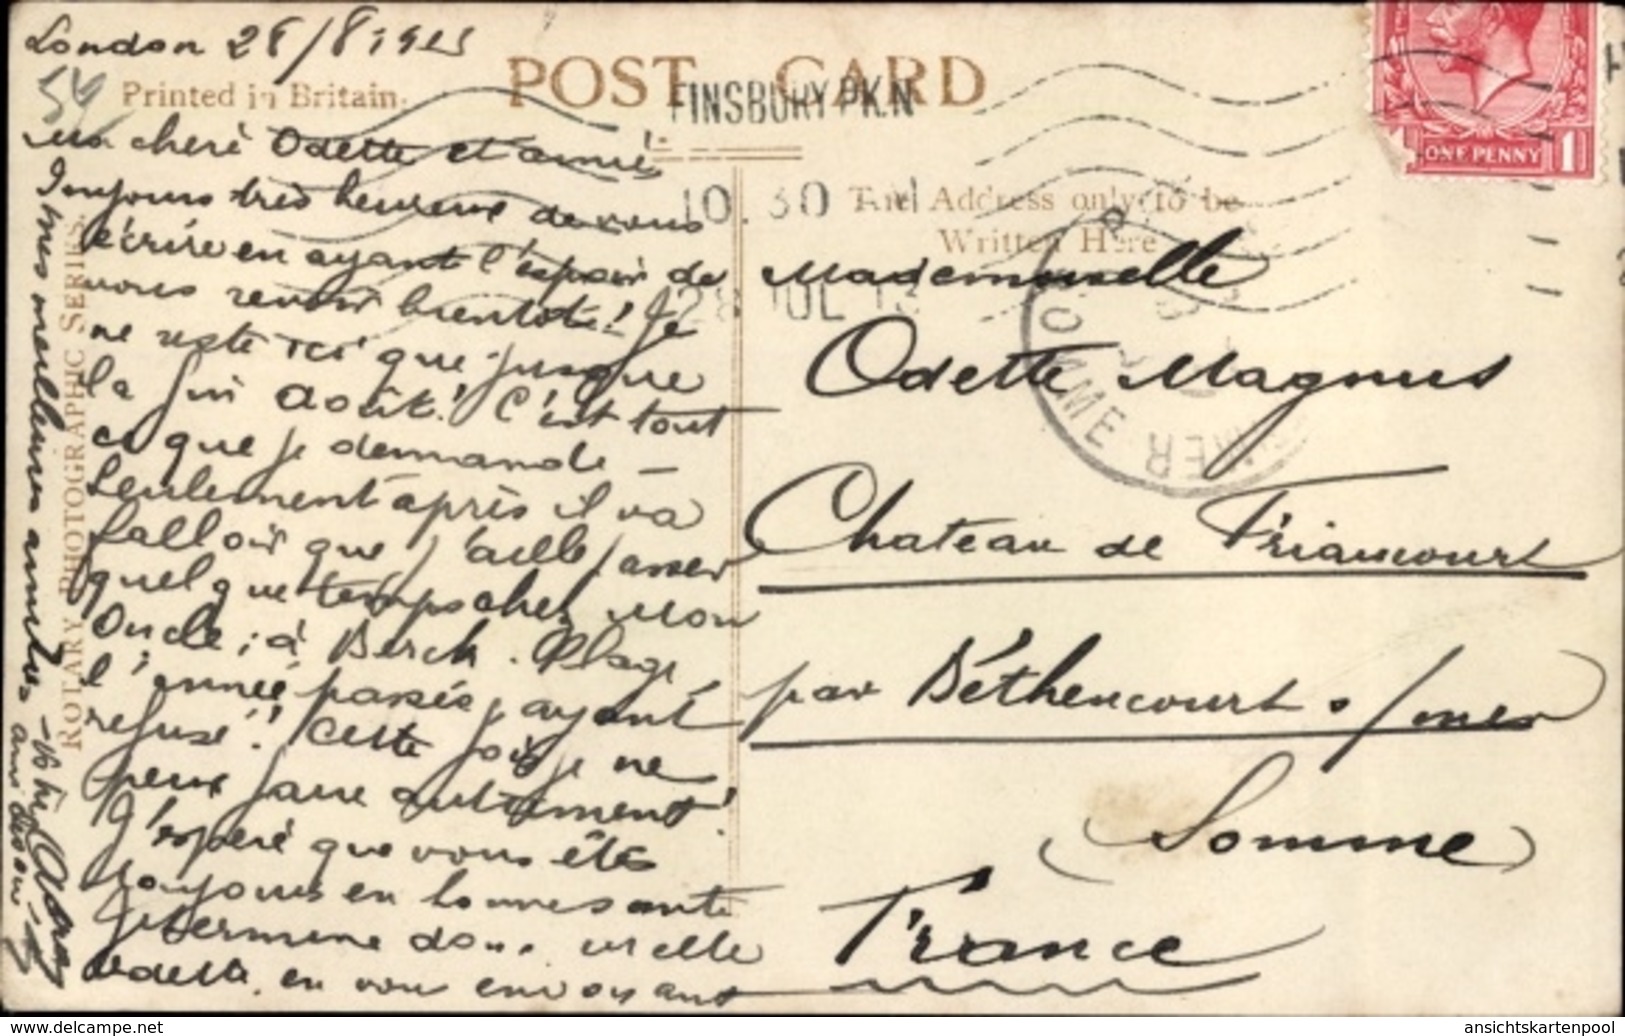 London 28/8 1913
54
Printed in Britain.
POST CARD
FINSBURY PK. N
10.30
28 JUL 13
The Address only to be
Written Here
ONE PENNY 1
ROTARY PHOTOGRAPHIC SERIES.
Ma cheré Odette et amié
Toujours trés heureuse de vous
écrire en ayant l'espoir de
vous revoir bientôt! Je
ne reste ici que jusque
la fin Août! C'est tout
ce que je demande –
Seulement après il va
falloir que j'aille passer
quelque temps chez Mon
Oncle, à Berck. Plage
l'année passée, ayant
refusé! Cette fois je ne
peux faire autrement!
J'esperé que vous êtes
toujours en bonne santé
Je termine donc, ma
Odette, en vous envoyant
mes meilleures amitiés
Mademoiselle
Odette Magnus
Chateau de Friaucourt
par Béthencourt s/mer
(Somme)
France
ansichtskartenpool
www.delcampe.net